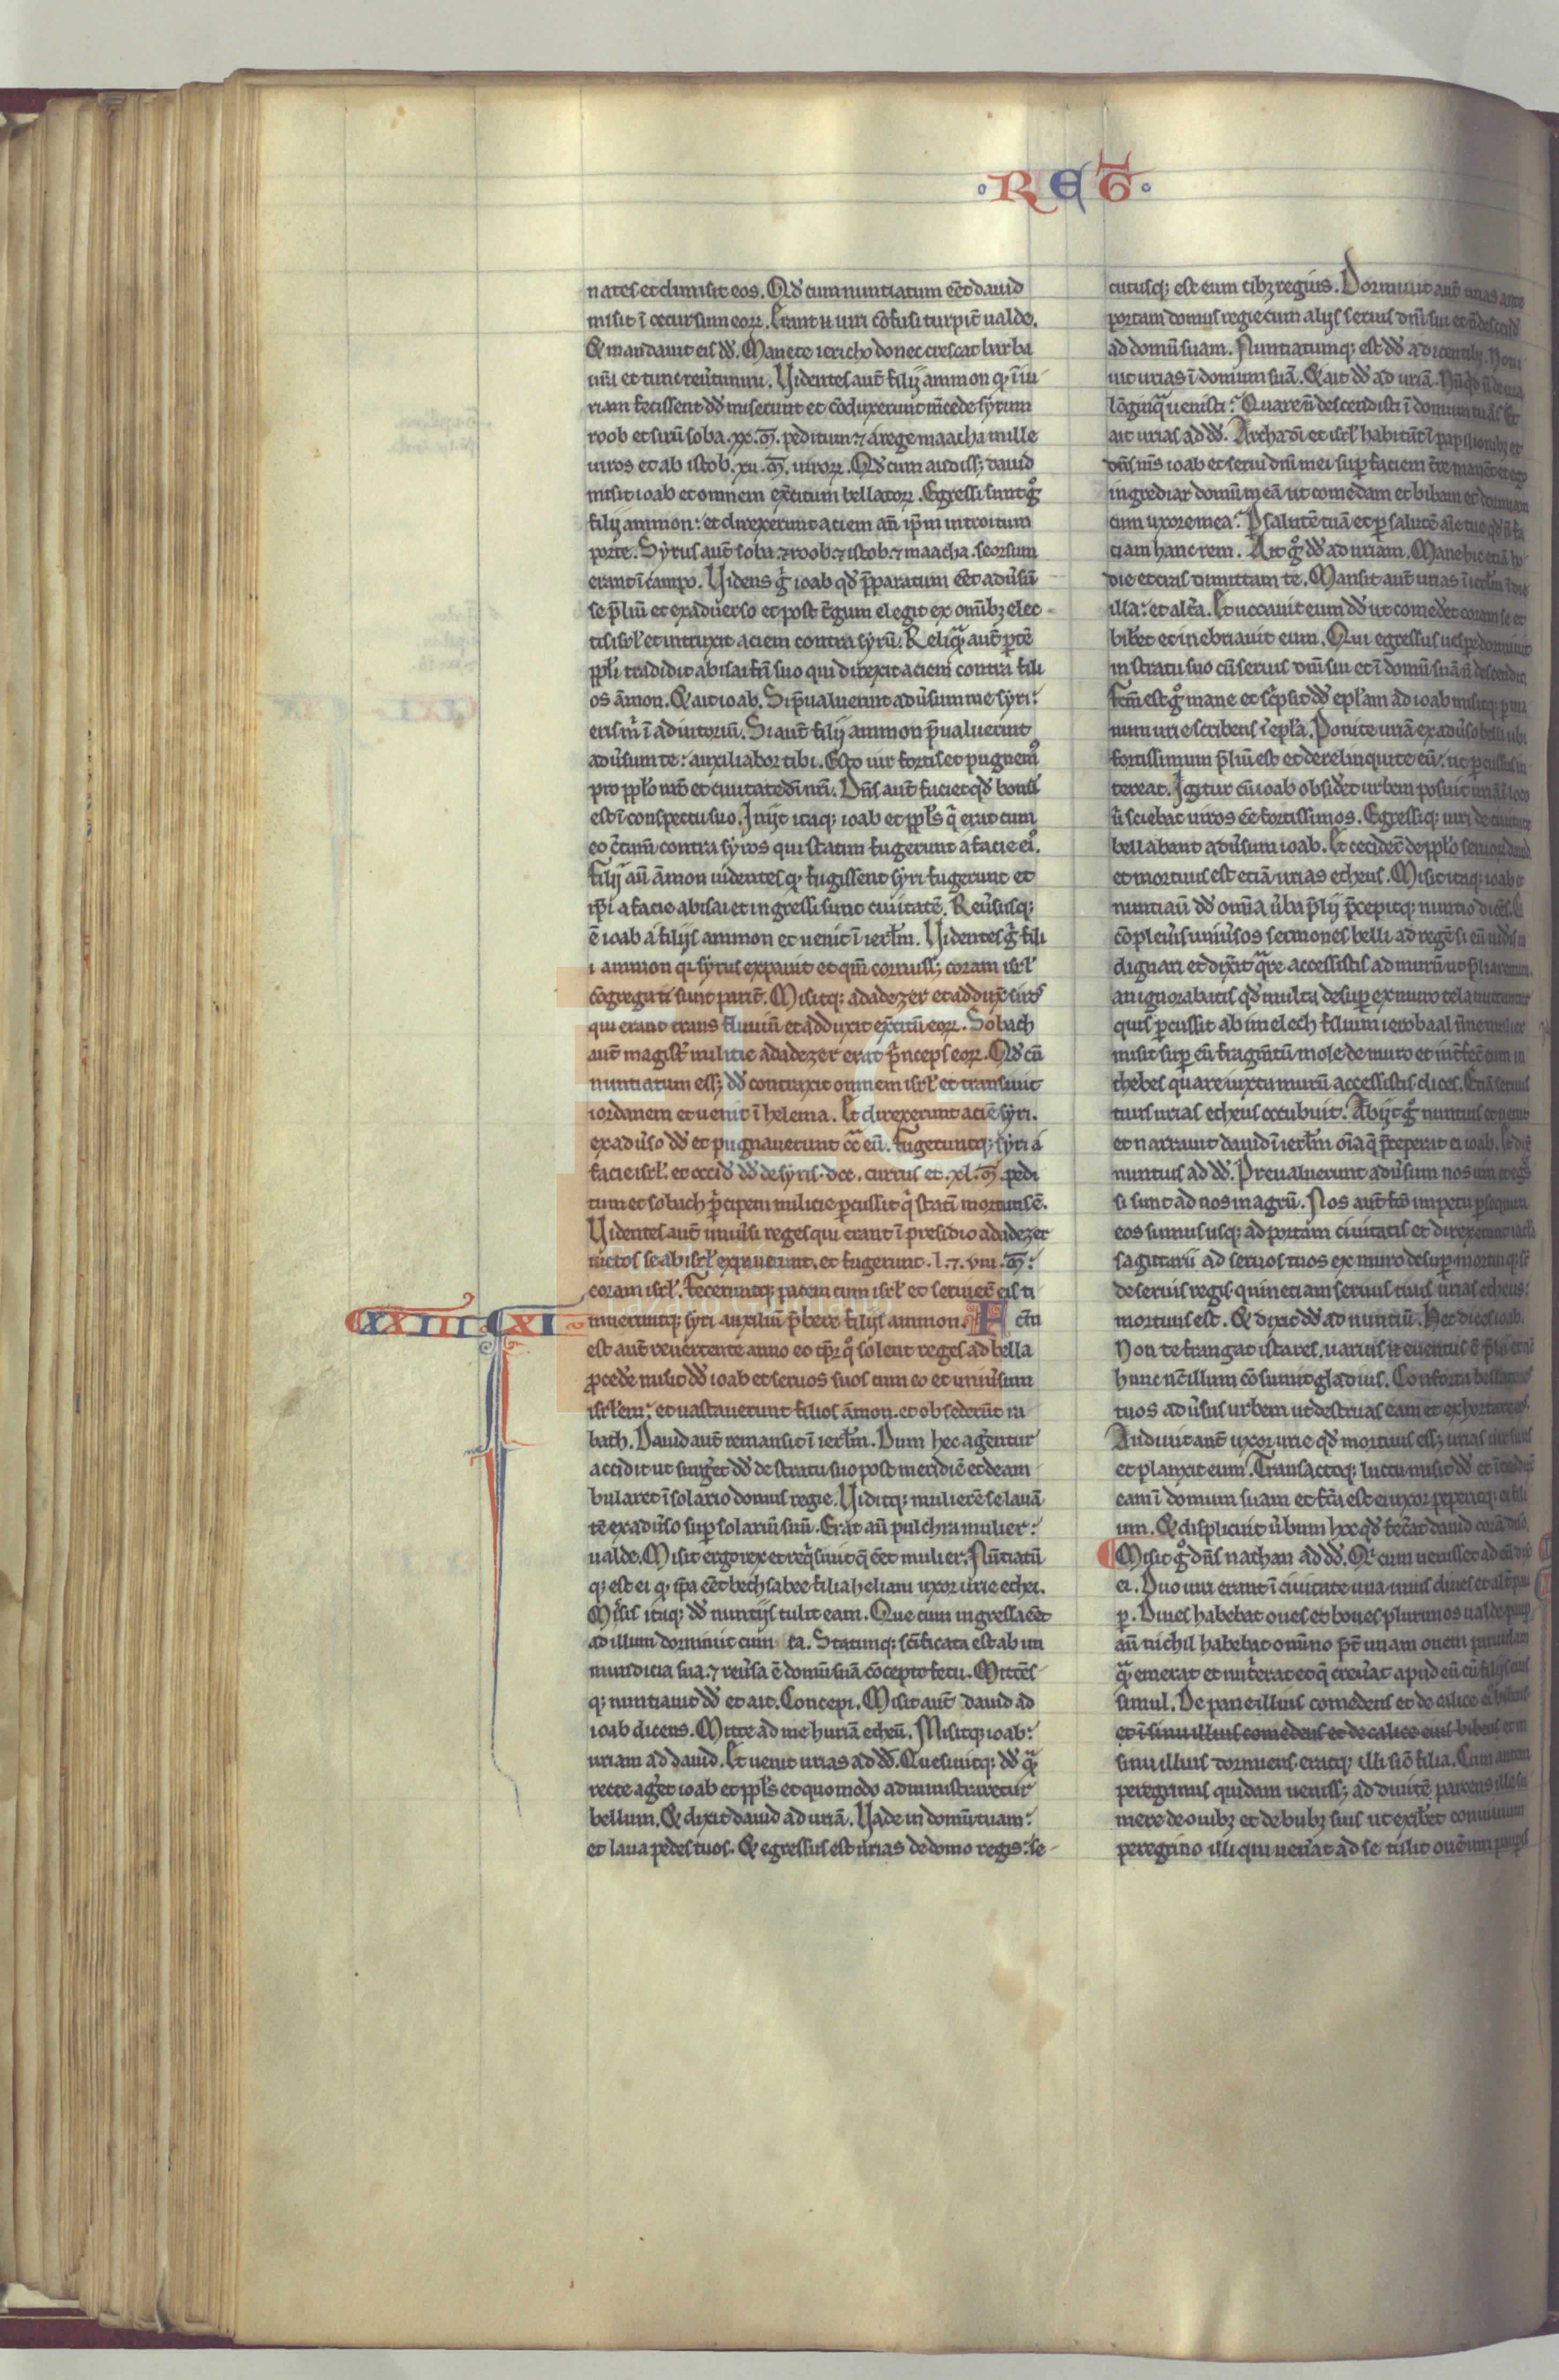 REG̅
nates et dimisit eos. Qd̕ cum nuntiatum eēt dauid
misit ī occursum eorꝝ. Erant n̄ uiri cōfusi turpit̕ ualde.
Et mandauit eis dd̄. Manete iericho donec crescat barba
ur̄a et tunc reu̕timini. Uidentes aut̄ filij ammon qꝫ īiu
riam fecissent dd̄ miserunt et cōduxerunt m̄cede syrum
roob et sirū soba .xx. m̄. peditum ⁊ a rege maacha mille
uiros et ab istob .xii. m̄. uirorꝝ. Qd̕ cum audissꝫ dauid
misit ioab et omnem ex̄citum bellatorꝝ. Egressi sunt gͦ
filij ammon: et direxerunt aciem an̄ ip̄m introitum
porte. Syrus aut̄ soba ⁊ roob ⁊ istob ⁊ maacha seorsum
erant ī campo. Uidens gͥ ioab qd̕ p̄paratum eēt adu̕sū
se p̄liū et ex aduerso et post t̕gum elegit ex omībꝫ elec
tis isrl̕ et intruxit aciem contra syrū. Reliqͣ aut̄ ꝑtē
ppl̕i tradidit abisai fr̄i suo qui direxit aciem contra fili
os āmon. Et ait ioab. Si p̄ualuerint adu̕sum me syri:
eris m̕ ī adiutoriū. Si aut̄ filij ammon p̄ualuerint
adu̕sum te: auxiliabor tibi. Esto uir fortis et pugnemꝰ
pro ppl̕o nr̄o et ciuitate dī nr̄i. Dn̄s aut̄ faciet qd̕ bonū
est ī conspectu suo. Iniit itaqꝫ ioab et ppl̕s q̕ erat cum
eo c̕tam̄ contra syros qui statim fugerunt a facie eiꝰ.
Filij au̅ āmon uidentes qꝫ fugissent syri fugerunt et
ip̄i a facie abisai et ingressi sunt ciuitatē. Reu̕susqꝫ
ē ioab a filijs ammon et uenit ī ierl̄m. Uidentes gͥ fili
i ammon qꝫ syrus expauit et qm̄ corruissꝫ coram isrl̕
cōgregati sunt parit̕. Misitqꝫ adadezer et adduxit siros
qui erant trans fluuiū et adduxit ex̄citū eorꝝ. Sobach
aut̄ magist̕ militie adadezer erat p̕nceps eorꝝ. Qd̕ cū
nuntiatum essꝫ dd̄ contraxit omnem isrl̕ et transiuit
iordanem et uenit ī helema. Et direxerunt aciē syri
ex adu̕so dd̄ et pugnauerunt cͣ eū. Fugeruntqꝫ syri a
facie isrl̕. et occid̕ dd̄ de syris .dcc. currus et .xl. m̄. pedi
tum et sobach p̕ncipem militie ꝑcussit q̕ statī mortuus ē.
Uidentes aut̄ uniu̕si reges qui erant ī presidio adadezer
uictos se ab isrl̕ expauerunt. et fugerunt .l. ⁊ .viii. m̄:
coram isrl̕. Feceruntqꝫ pacem cum isrl̕ et seruier̄ eis ti
CXXIII CXI
mueruntqꝫ syri auxiliū p̄bere filijs ammon. Fctū
est aut̄ reuertente anno eo tp̄r qͦ solent reges ad bella
ꝓcede̕ misit dd̄ ioab et seruos suos cum eo et uniu̕sum
isrl̕em: et uastauerunt filios āmon. et obsederūt ra
bath. Dauid aut̄ remansit ī ierl̄m. Dum hec ag̕entur
accidit ut surg̕et dd̄ de stratu suo post meridiē et deam
bularet ī solario domus regie. Uiditqꝫ mulierē se lauā
tē ex adu̕so suꝑ solariū suū. Erat au̅ pulchra mulier:
ualde. Misit ergo rex et req̕siuit q̄ eēt mulier. Nūtiatū
qꝫ est ei qꝫ ip̄a eēt bethsabee filia heliam uxor urie ethei.
Missis itaqꝫ dd̄ nuntijs tulit eam. Que cum ingressa eēt
ad illum dormiuit cum ea. Statimqꝫ sc̄ificata est ab im
mundicia sua. ⁊ reu̕sa ē domū suā cōcepto fetu. Mittēs
qꝫ nuntiauit dd̄ et ait. Concepi. Misit aut̄ dauid ad
ioab dicens. Mitte ad me huriā etheū. Misitqꝫ ioab:
uriam ad dauid. Et uenit urias ad dd̄. Quesiuitqꝫ dd̄ qͣ
recte ag̕et ioab et ppl̕s et quomodo administraretur
bellum. Et dixit dauid ad uriā. Uade in domū tuam:
et laua pedes tuos. Et egressus est urias de domo regis: se
cutusqꝫ est eum cibꝫ regius. Dormiuit aut̄ urias ante
portam domus regie cum alijs seruis dn̄i sui et n̄ descend̕
ad domū suam. Nuntiatumqꝫ est dd̄ a dicentibꝫ. Non
iuit urias ī domum suā. Et ait dd̄ ad uriā. Nūqd̕ n̄ de uia
lōginqͣ uenisti: Quare n̄ descendisti ī domum tuā: Et
ait urias ad dd̄. Archa dī et isrl̕ habitāt ī papilionibꝫ et
dn̄s m̄s ioab et serui dn̄i mei suꝑ faciem t̕re manēt et ego
ingrediar domū meā ut comedam et bibam et dormiam
cum uxore mea: P salutē tuā et ꝑ salutē aīe tue qd̕ n̄ fa
ciam hanc rem. Ait gͦ dd̄ ad uriam. Mane hic etiā ho
die et cras dimittam te. Mansit aut̄ urias ī ierl̄m ī die
illa: et alt̕a. Et uocauit eum dd̄ ut comed̕et coram se et
bib̕et et inebriauit eum. Qui egressus uesꝑe dormiuit
in stratu suo cū seruis dn̄i sui et ī domū suā n̄ descendit.
Fc̄m est gͦ mane et sc̕psit dd̄ epl̕am ad ioab misitqꝫ ꝑ ma
num urie scribens ī epl̕a. Ponite uriā ex adu̕so belli ubi
fortissimum p̄liū est et derelinquite eū: ut ꝑcussus in
tereat. Igitur cū ioab obsid̕et urbem posuit uriā ī loco
u̕ sciebat uiros eē fortissimos. Egressiqꝫ uiri de ciuitate
bellabant adu̕sum ioab. Et cecider̄t de ppl̕o seruorꝝ dauid
et mortuus est etiā urias etheus. Misit itaqꝫ ioab et
nuntiau̅ dd̄ omīa u̕ba p̄lij p̄cepitqꝫ nuntio dicēs. Cū
cōpleu̕is uniu̕sos sermones belli ad regē si eū uid̕is in
dignari et dix̕it qͣre accessistis ad murū ut p̄liaremini.
an ignorabatis qd̕ multa desuꝑ ex muro tela mittantur
quis ꝑcussit abimelech filium ierobaal n̄ne mulier
misit suꝑ eū fragm̄tū mole de muro et int̕fec̄ eum in
thebes quare iuxta murū accessistis dices. Etiā seruus
tuus urias etheus occubuit. Abijt gͦ nuntius et uenit
et narrauit dauid ī ierl̄m oīa q̄ p̄ceperat ei ioab. Et dix̄
nuntius ad dd̄. Preualuerunt adu̕sum nos uiri et egͤs
si sunt ad nos in agrū. Nos aut̄ fc̄o impetu ꝑsequuti
eos sumus usqꝫ ad portam ciuitatis et direxerunt iacl̕a
sagittarii ad seruos tuos ex muro desuꝑ mortuiqꝫ sūt
de seruis regis. quinetiam seruus tuus urias etheus:
mortuus est. Et dixit dd̄ ad nuntiū. Hec dices ioab.
Non te frangat ista res. uarius n̄ euentus ē p̄lij et nc̄
hunc nc̄ illum cōsumit gladius. Conforta bellatores
tuos adu̕sus urbem ut destruas eam et exhortare eos.
Audiuit aut̄ uxor urie qd̕ mortuus essꝫ urias uir suus
et planxit eum. Transactoqꝫ luctu misit dd̄ et ītrodux̄
eam ī domum suam et fc̄a est ei uxor peperitqꝫ ei fili
um. Et displicuit u̕bum hoc qd̕ fec̕at dauid corā dn̄o.
Misit gͦ dn̄s nathan ad dd̄. Qͥ cum uenisset ad eū dix̄
ei. Duo uiri erant ī ciuitate una unus diues et alt̕ pau
ꝑ. Diues habebat oues et boues plurimos ualde paup̕
au̅ nichil habebat omīno p̄t̕ unam ouem paruulam
qͣ emerat et nut̕erat et q̄ creu̕at apud eū cū filijs eius
simul. De pane illius comedens et de calice eiꝰ bibens
et ī sinu illius comedens et de calice eius bibens et in
sinu illius dormiens eratqꝫ illi sic̄ filia. Cum autem
peregrinus quidam uenissꝫ ad diuitē parcens ille su
mere de ouibꝫ et de bubꝫ suis ut exib̕et conuiuium
peregrino illi qui uen̕at ad se tulit ouē uiri pauꝑis